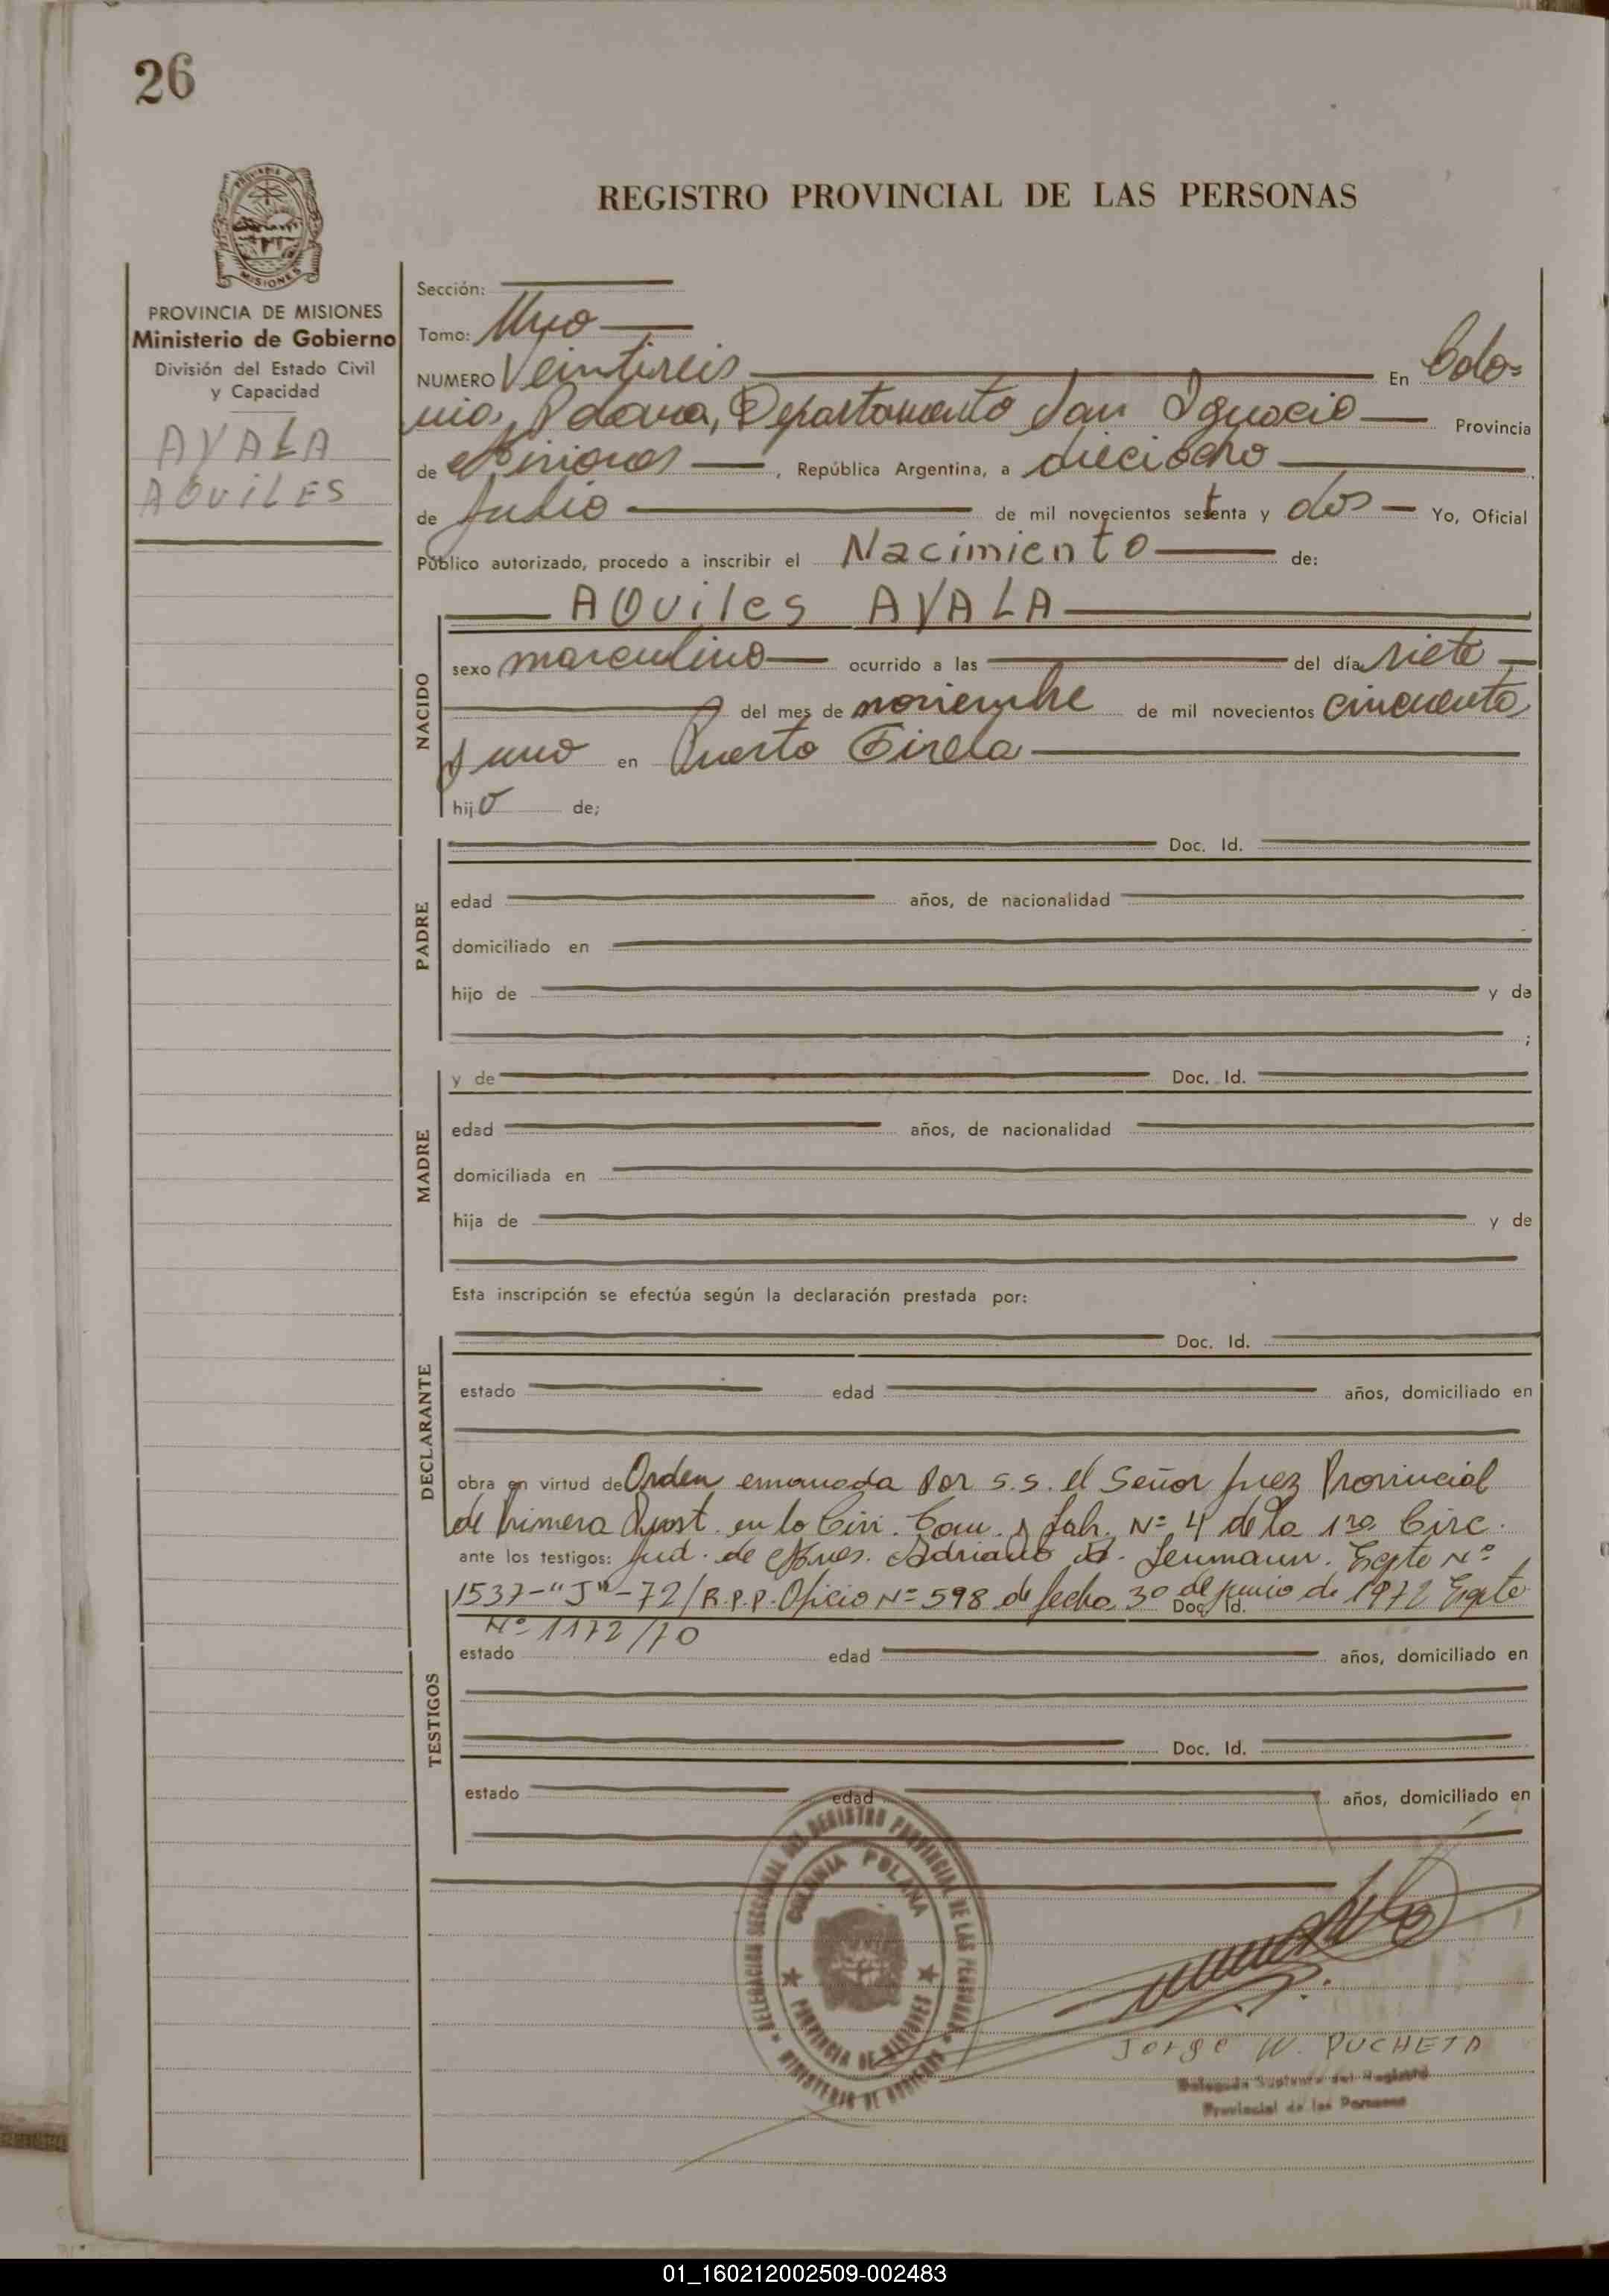 26
REGISTRO PROVINCIAL DE LAS PERSONAS
MISIONES
PROVINCIA DE MISIONES
Ministerio de Gobierno
División del Estado Civil
y Capacidad
AYALA
AQUILES
Sección:
Tomo: Uno
NUMERO Veintiseis En Colo=
nia Polana, Departamento San Ignacio Provincia
de Misiones, República Argentina, a dieciocho
de Julio de mil novecientos setenta y dos Yo, Oficial
Público autorizado, procedo a inscribir el Nacimiento de:
AQuiles AYALA
NACIDO
sexo masculino ocurrido a las del día siete
del mes de noviembre de mil novecientos cincuenta
y uno en Puerto Gisela
hijo de;
PADRE
Doc. Id.
edad años, de nacionalidad
domiciliado en
hijo de y de
;
MADRE
y de Doc. Id.
edad años, de nacionalidad
domiciliada en
hija de y de
Esta inscripción se efectúa según la declaración prestada por:
DECLARANTE
Doc. Id.
estado edad años, domiciliado en
obra en virtud de Orden emanada por S.S. el Señor Juez Provincial
de Primera Inst. en lo Civ. Com. y Lab. Nº 4 de la 1ra Circ.
ante los testigos: Jud. de Mnes. Adriano Neumann. Expte Nº
1537-"J"-72/R.P.P. Oficio Nº 598 de fecha 30 de junio de 1972 Expte
Doc. Id.
Nº 1172/70
TESTIGOS
estado edad años, domiciliado en
Doc. Id.
estado edad años, domiciliado en
DELEGACION SECCIONAL DEL REGISTRO PROVINCIAL DE LAS PERSONAS
COLONIA POLANA
PROVINCIA DE MISIONES
MINISTERIO DE GOBIERNO
Jorge W. PUCHETA
Delegado Suplente del Registro
Provincial de las Personas
01_160212002509-002483